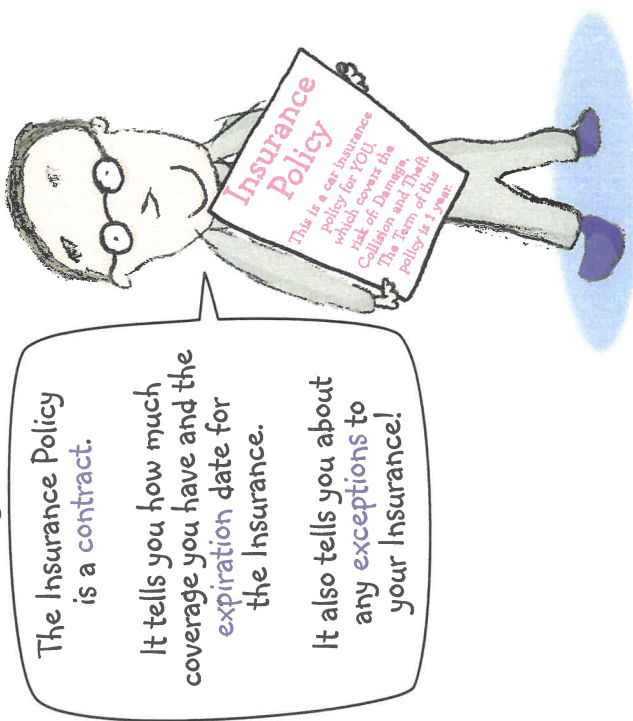 The Insurance Policy
is a contract.
It tells you how much
coverage you have and the
expiration date for
the Insurance.
It also tells you about
any exceptions to
your Insurance!
Insurance
Policy
This is a car insurance
policy for YOU.
which covers the
risk of: Damage,
Collision and Theft.
The Term of this
policy is 1 year.